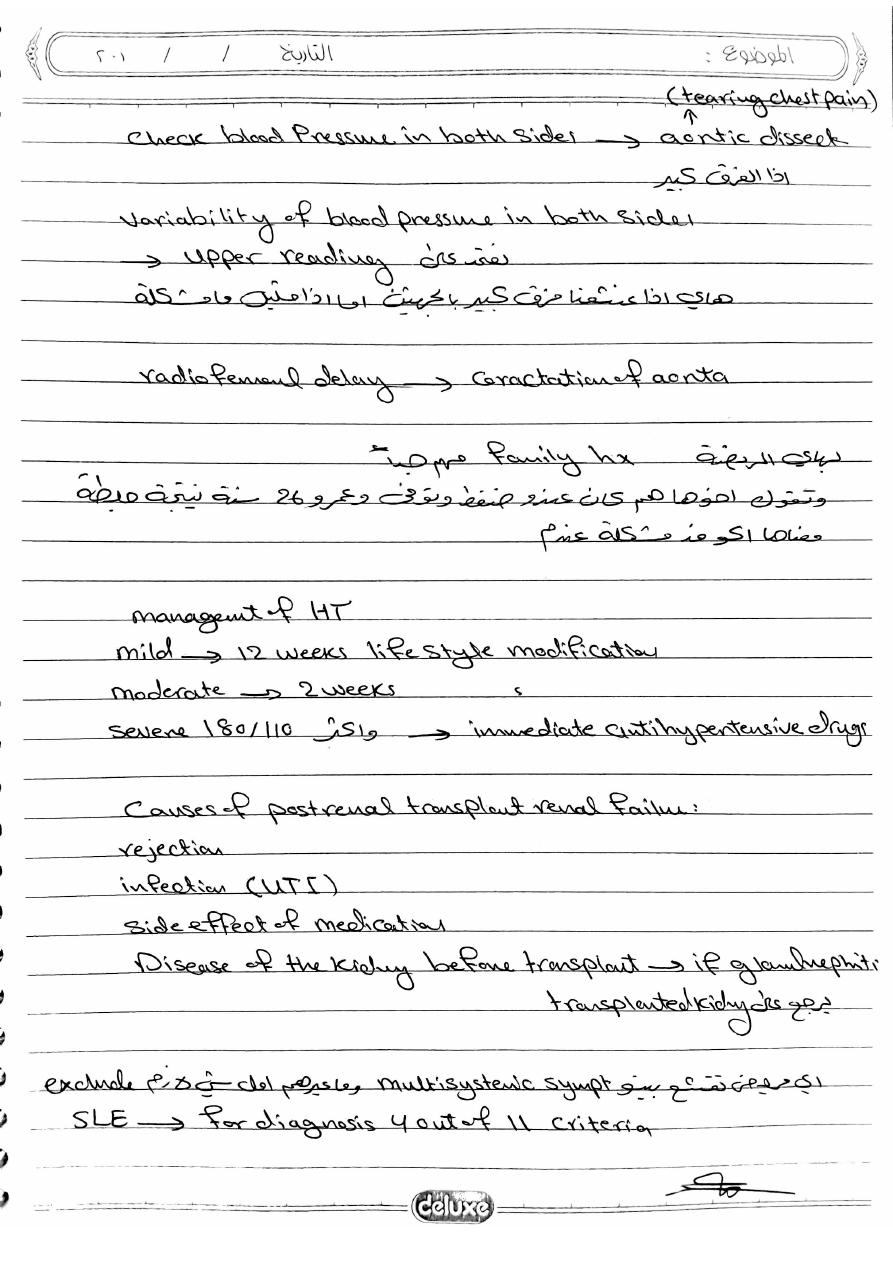 الموضوع : التاريخ / / ٢٠١
(tearing chest pain)
check blood Pressure in both sides → aortic dissect
اذا الفرق كبير
Variability of blood pressure in both sides
→ upper reading نعتمد على
هاي اذا عنا فرق كبير بالجهتين اما اذا قليل ما مشكلة
radiofemoral delay → coractation of aorta
لهاي المريضة family hx مهم جداً
وتقول اخوها هم كان عندو ضغط وتوفى وعمرو 26 سنة نتيجة جلطة
معناها اكو مشكلة عدهم
managemt of HT
mild → 12 weeks life style modification
moderate → 2 weeks
severe 180/110 واكثر → immediate antihypertensive drugs
Causes of postrenal transplant renal failure:
rejection
infection (UTI)
side effect of medication
Disease of the kidney before transplant → if glomulnephiti
يرجع على transplanted kidny
اي مريض multisystemic sympt اول شي لازم exclude
SLE → for diagnosis 4 out of 11 criteria
deluxe